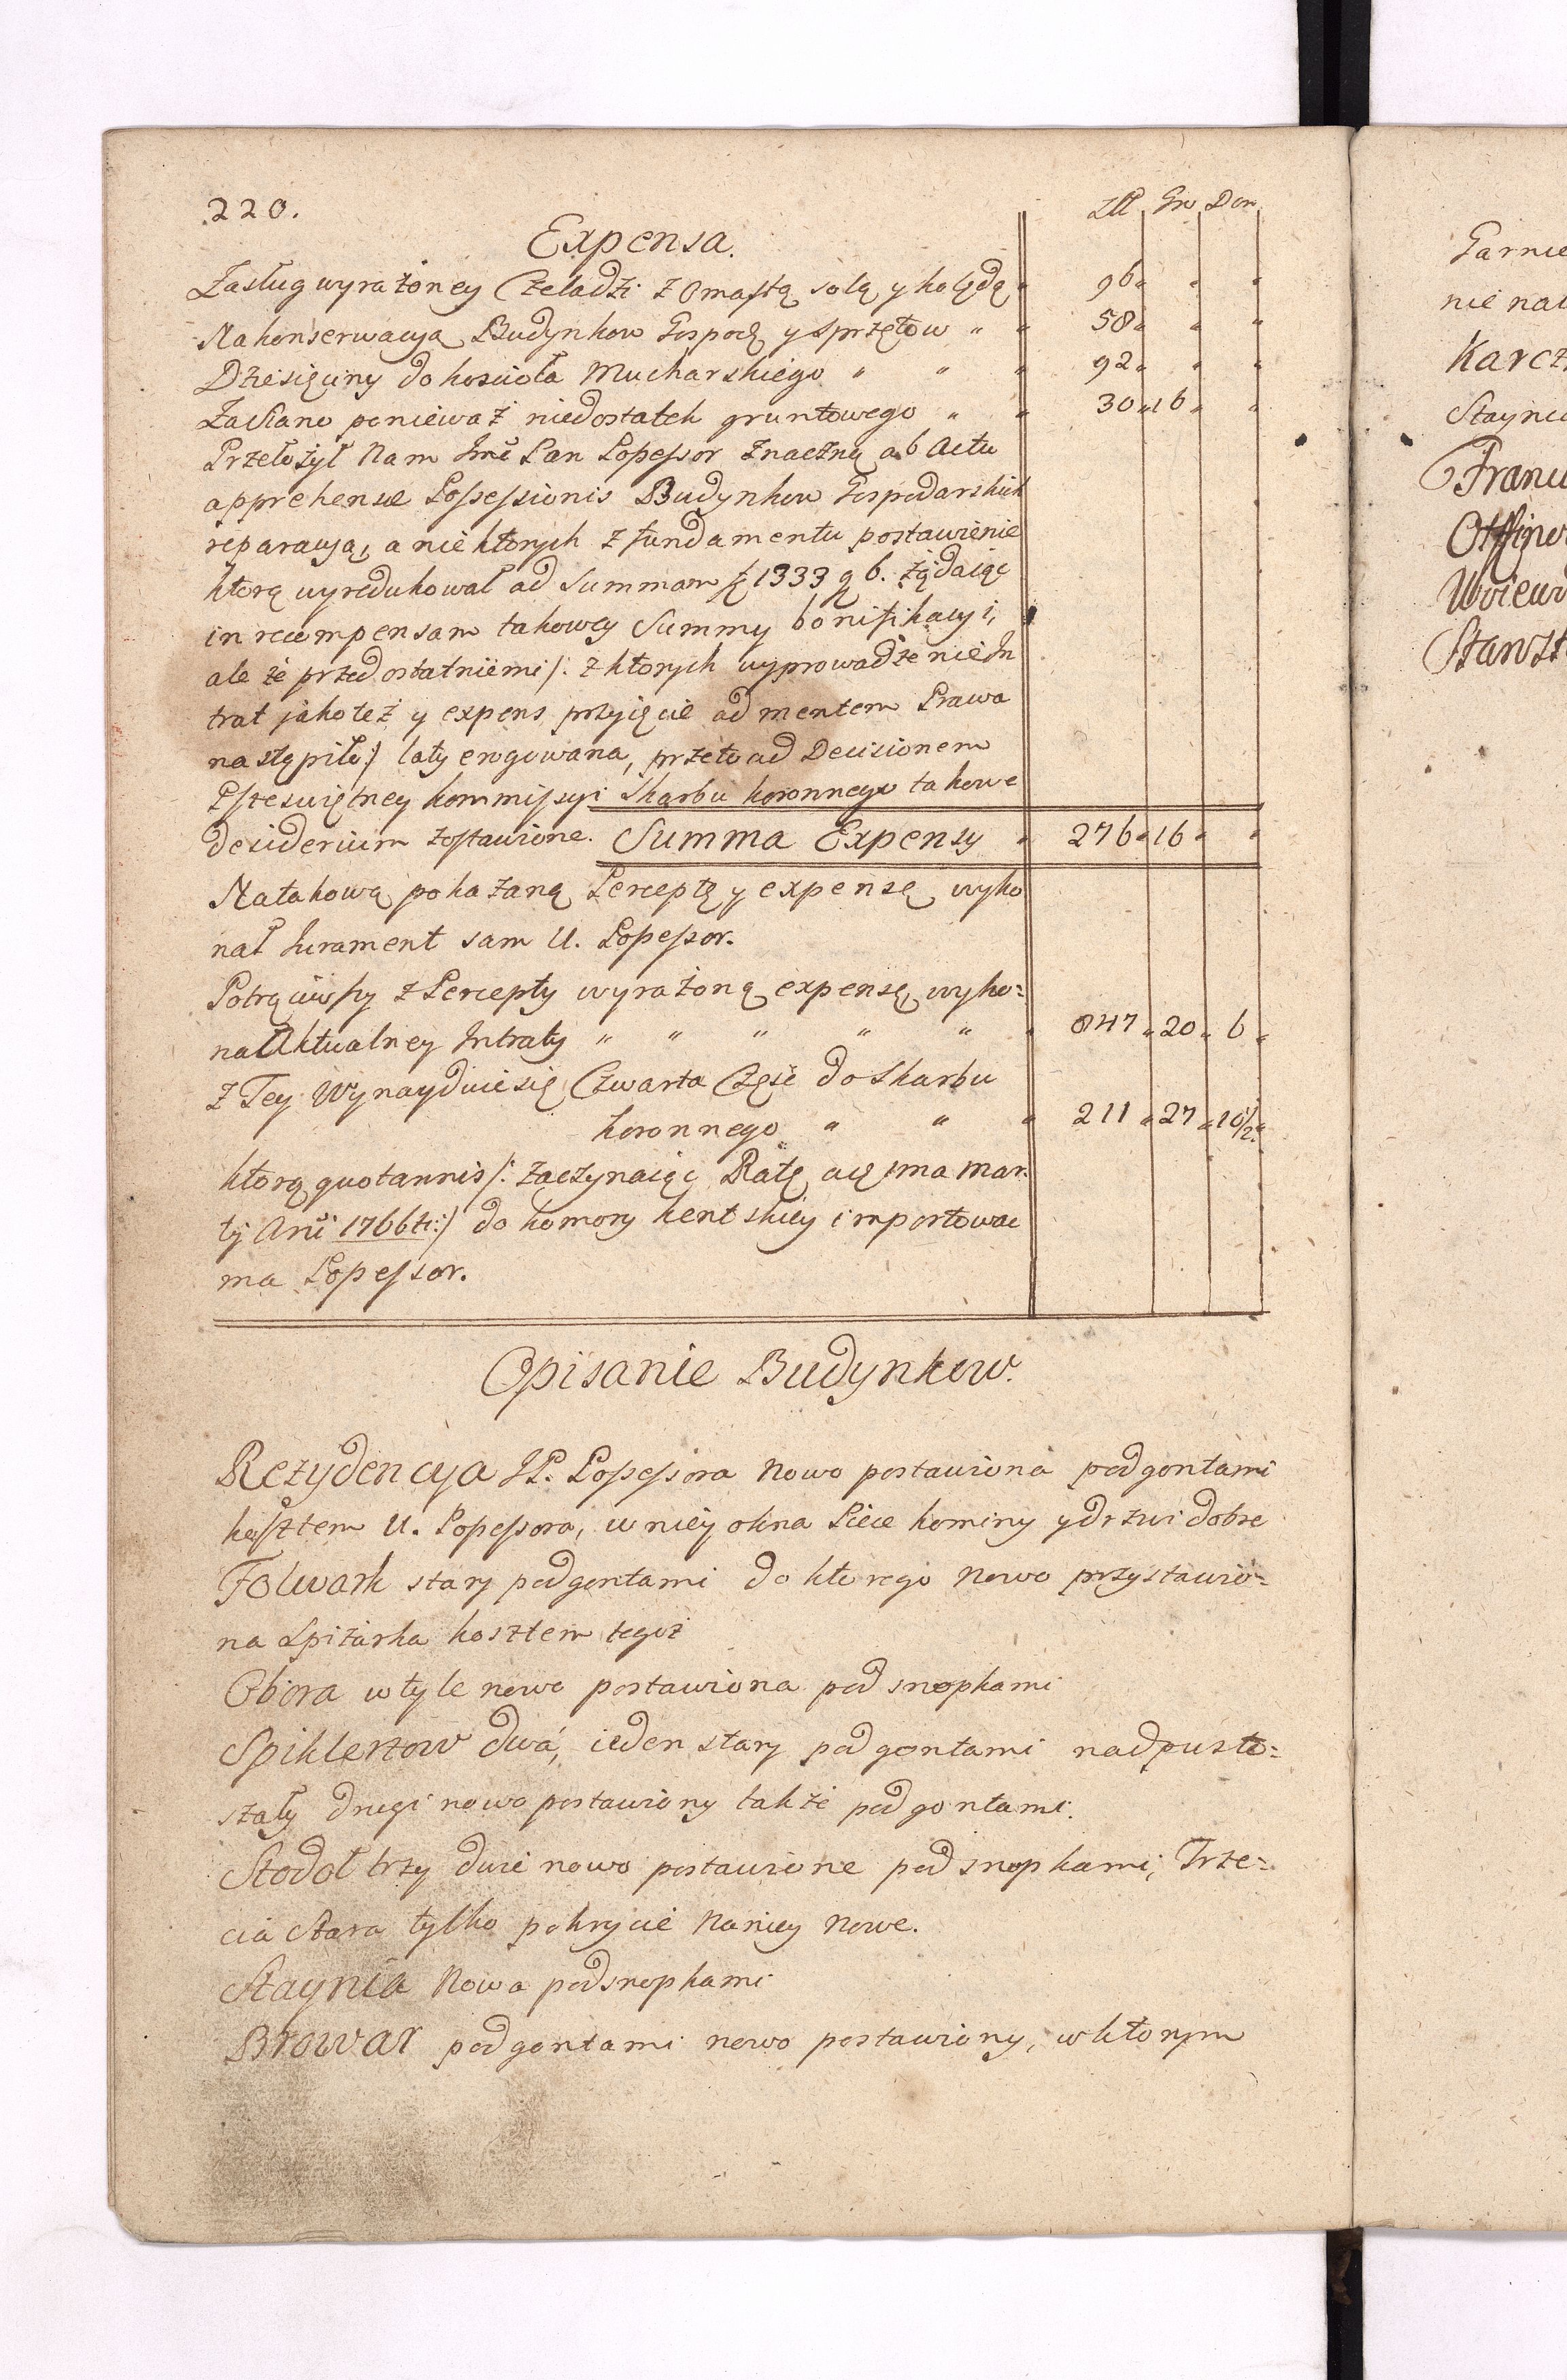 220.
Złł Gr Den
Expensa.
Zasług wyrażoney Czeladzi z omastą solą y kolędą " 96 " " "
Na konserwacyą Budynkow Gospod. y sprzętow " " 58 " " "
Dziesięciny do kościoła Mucharskiego " " " 92 " " "
Za Siano ponieważ niedostatek gruntowego " " 30 " 16 " "
Przełożył Nam Jmć Pan Possessor znaczną ab Actu
apprehensæ Possessionis Budynkow Gospodarskich
reparacyą, a niektorych z fundamentu postawienie
ktorą wyredukował ad Summam 1333 g 6. żądaiąc
in recompensam takowey Summy bonifikacyi,
ale że przed ostatniemi /: z ktorych wyprowadzenie In
trat jako też y expens przyięcie ad mentem Prawa
nastąpiło :/ laty erogowana, przeto ad Decisionem
Przeświętney kommissyi Skarbu koronnego takowe
desiderium zostawione. Summa Expensy " 276 " 16 " "
Na takową pokazaną Perceptę y expensę wyko
nał Jurament sam U. Possessor.
Potrąciwszy z Percepty wyrażoną expensę, wyko=
na Aktualney Intraty " " " " " " 847 " 20 " 6 "
z Tey Wynaydzie się Czwarta Część do Skarbu
koronnego " " " 211 " 27 " 10 1/2 "
ktorą quotannis /: zaczynaiąc Ratę a 1ma Mar
tij Anni 1766ti :/ do komory kentskiey importować
ma Possessor.
Opisanie Budynkow.
Rezydencya JP. Possessora nowo postawiona pod gontami
kosztem U. Possessora, w niey okna Piece kominy y drzwi dobre
Folwark stary pod gontami do ktorego nowo przystawio=
na Spiżarka kosztem tegoż
Obora w tyle nowo postawiona pod snopkami
Spiklerzow dwa, ieden stary pod gontami nadpusto=
szały drugi nowo postawiony także pod gontami.
Stodoł trzy dwie nowo postawione pod snopkami, Trze=
cia Stara tylko pokrycie na niey nowe.
Staynia Nowa pod snopkami
Browar pod gontami nowo postawiony, w ktorym
Garnie
nie nal
Karcz
Stayni
Franc
Woiew
Stanis